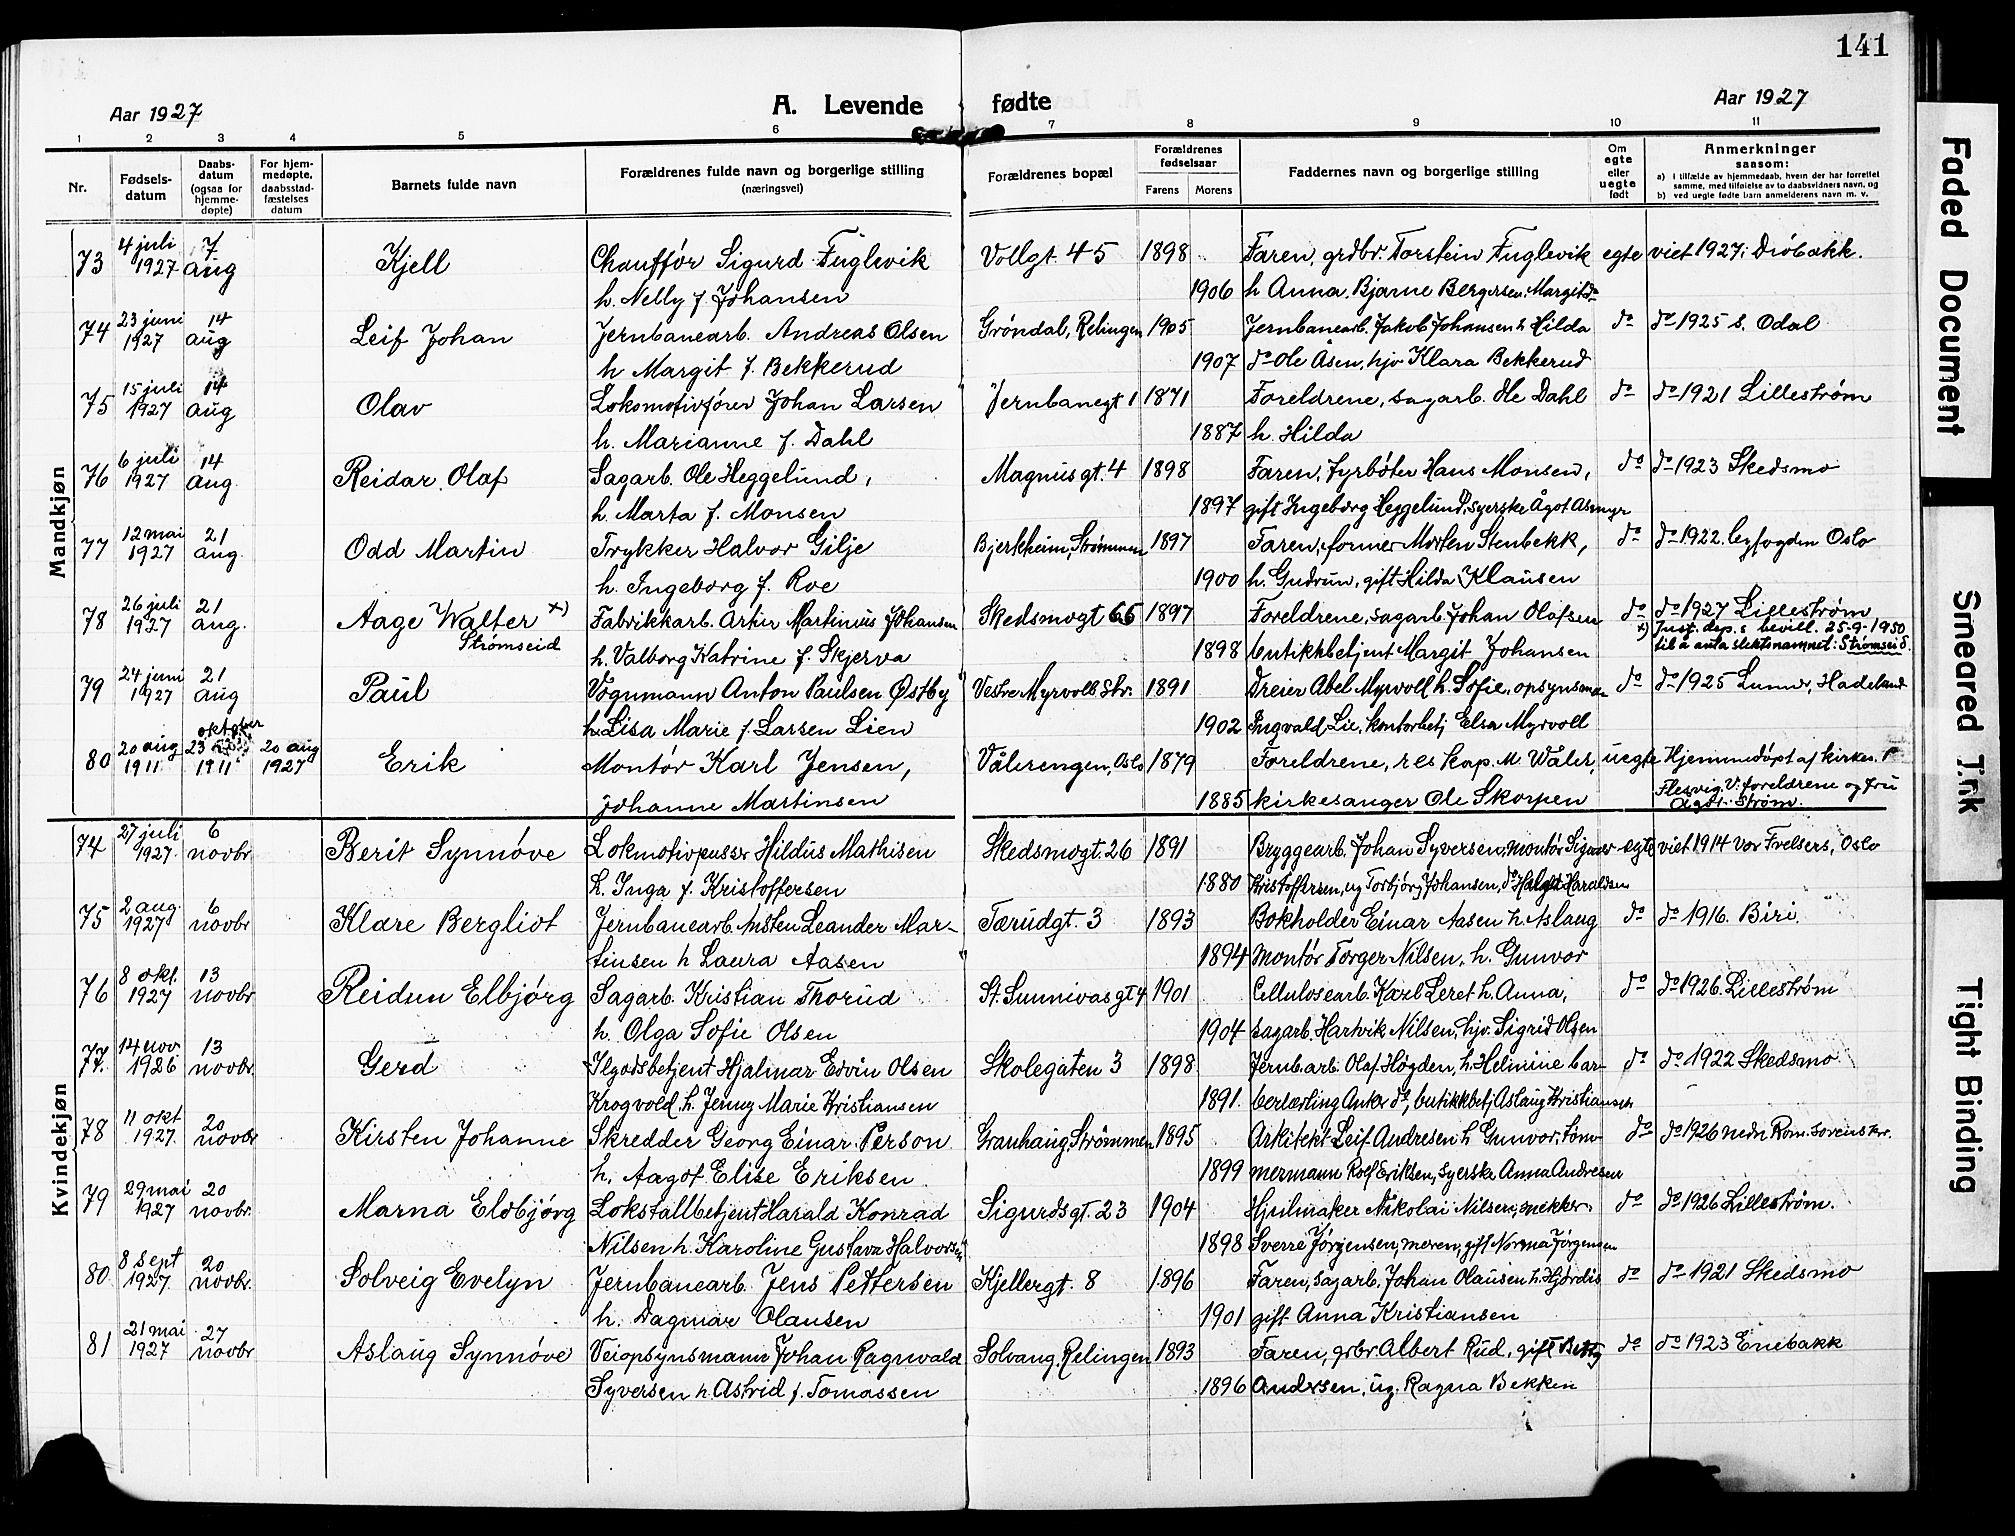 141
Aar 1927
A. Levende fødte
Aar 1927
1 2 3 4 5 6 7 8 9 10 11
Nr.
Fødsels-
datum
Daabs-
datum
(ogsaa for
hjemme-
døpte)
For hjem-
medøpte,
daabsstad-
fæstelses
datum
Barnets fulde navn
Forældrenes fulde navn og borgerlige stilling
(næringsvei)
Forældrenes bopæl
Forældrenes
fødselsaar
Farens Morens
Faddernes navn og borgerlige stilling
Om
egte
eller
uegte
født
Anmerkninger
saasom:
a) I tilfælde av hjemmedaab, hvem der har forrettet
samme, med tilføielse av to daabsvidners navn, og
b) ved uegte fødte barn anmelderens navn m. v.
Mandkjøn
73 4 juli 7 Kjell Chauffør Sigurd Fuglevik Vollgt. 45 1898 Faren, grdbr. Torstein Fuglevik egte viet 1927 i Drøbakk.
1927 aug h. Nelly f. Johansen 1906 h Anna, Bjarne Bergersen, Margit do
74 23 juni 14 Leif Johan Jernbanearb. Andreas Olsen Grøndal, Relingen 1905 Jernbanearb. Jakob Johansen h Hilda do do 1925 s. Odal
1927 aug h Margit f. Bekkerud 1907 do Ole Åsen, hjv Klara Bekkerud
75 15 juli 14 Olav Lokomotivfører Johan Larsen Jernbanegt 1 1871 Foreldrene, sagarb. Ole Dahl do do 1921 Lillestrøm
1927 aug h. Marianne f. Dahl 1887 h. Hilda
76 6 juli 14 Reidar Olaf Sagarb. Ole Heggelund, Magnusgt. 4 1898 Faren, fyrbøter Hans Monsen, do do 1923 Skedsmo
1927 aug. h. Marta f. Monsen 1897 gift Ingeborg Heggelund, syerske Ågot Asmyr
77 12 mai 21 Odd Martin Trykker Halvor Gilje Bjerkheim, Strømmen 1897 Faren, former Morten Stenbekk, do do 1922. byfogden Oslo
1927 aug. h. Ingeborg f. Roe 1900 h. Gudrun, gift Hilda Klausen
78 26 juli 21 Aage Walter x) Fabrikkarb. Artur Martinius Johansen Skedsmogt 65 1897 Foreldrene, sagarb. Johan Olafsen do do 1927 Lillestrøm
1927 aug. Strømseid h. Valborg Katrine f. Skjerva 1898 butikkbetjent Margit Johansen x) Just. dep.s bevill. 25-9-1950
til å anta slektsnamnet: Strømseid.
79 24 juni 21 Paul Vognmann Anton Paulsen Østby Vestre Myrvoll Str. 1891 Dreier Abel Myrvoll h. Sofie, opsynsman do do 1925 Lunner, Hadeland
1927 aug h. Lisa Marie f. Larsen Lien 1902 Ingvald Lie, kontorbetj Elsa Myrvoll
80 20 aug 23 oktober 20 aug Erik Montør Karl Jensen, Vålerengen, Oslo 1879 Foreldrene, res kap. M. Wåler, uegte Hjemmedøpt af kirkes. P
1911 1911 1927 Johanne Martinsen 1885 kirkesanger Ole Skorpen Flesvig V: foreldrene og fru
Strøm.
Kvindekjøn
74 27 juli 6 Berit Synnøve Lokmotivpusser Hildus Mathisen Skedsmogt. 26 1891 Bryggearb. Johan Syversen, montør Sigurd egte viet 1914 Vor Frelsers, Oslo
1927. novbr h. Inga f. Kristoffersen 1880 Kristoffersen, ug Torbjørg Johansen, do Haraldsen
75 2 aug. 6 Klare Bergliot Jernbanearb. Ansten Leander Mar- Tærudgt. 3 1893 Bokholder Einar Aasen h Aslaug do do 1916. Biri.
1927 novbr tinsen h Laura Aasen 1894 montør Torger Nilsen, h. Gunvor
76 8 okt. 13 Reidun Elbjørg Sagarb. Kristian Thorud St. Sunnivas gt 4 1901 Cellulosearb. Karl Leret h. Anna, do do 1926. Lillestrøm
1927 novbr h. Olga Sofie Olsen 1904 sagarb. Hartvik Nilsen, hjv. Sigrid Olsen
77. 14 nov 13 Gerd Ilgodsbetjent Hjalmar Edvin Olsen Skolegaten 3 1898 Jernb.arb. Olaf Høgden, h. Helmine bar- do do 1922 Skedsmo
1926 novbr. Krogvold h. Jenny Marie Kristiansen 1891. berlærling Anker do, butikkbetj Aslaug Kristiansen
78 11 okt 20 Kirsten Johanne Skredder Georg Einar Person Granhaug, Strømmen 1895 Arkitekt Leif Andresen h Gunvor, tøm- do do 1926 nedr Rom. Lorenskr.
1927. novbr h. Aagot Elise Eriksen 1899 mermann Rolf Eriksen, syerske Anna Andresen
79 29 mai 20 Marna Eldbjørg Lokstallbetjent Harald Konrad Sigurdsgt. 23 1904 Hjulmaker Nikolai Nilsen, mekker. do do 1926 Lillestrøm.
1927 novbr. Nilsen h. Karoline Gustava Halvorsen 1898 Sverre Jørgensen, moren, gift Norma Jørgensen
80 8 sept 20 Solveig Evelyn Jernbanearb. Jens Pettersen Kjellergt. 8 1896 Faren, sagarb. Johan Olausen h. Hjørdis do do 1921 Skedsmo
1927. novbr. h. Dagmar Olausen 1901 gift Anna Kristiansen
81 21 mai 27 Aslaug Synnøve Veiopsynsmann Johan Ragnvald Solvang, Relingen 1893 Faren, grbr. Albert Rud, gift Betty do do 1923 Enebakk
1927 novbr Syversen h. Astrid f. Tomassen 1896 Andersen, ug. Ragna Bekken
Faded Document
Smeared Ink
Tight Binding